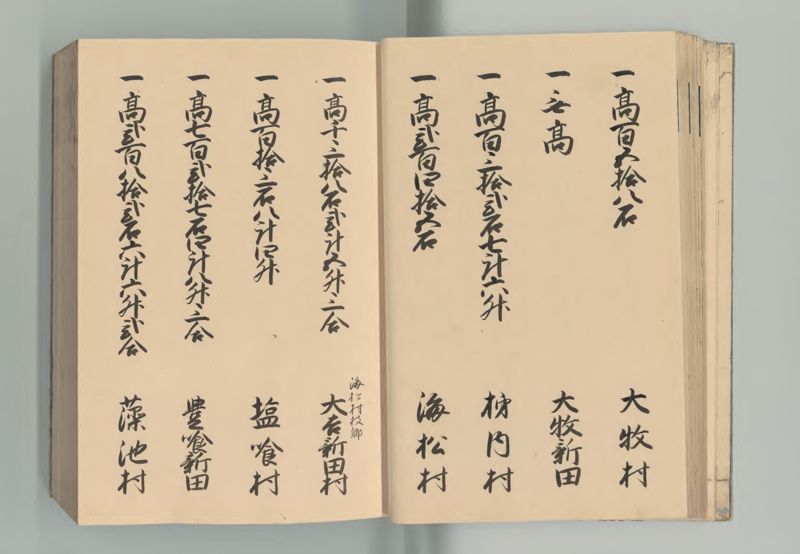 一高百五拾八石
大牧村
一無高
大牧新田
一高百三拾弐石七斗六升
杦内村
一高弐百四拾五石
海松村
一高千三拾八石弐斗五升三合
海松村枝郷
大吉新田村
一高百拾三石八斗四升
塩喰村
一高七百弐拾七石四斗八升三合
豊喰新田
一高弐百八拾弐石六斗六升弐合
藻池村